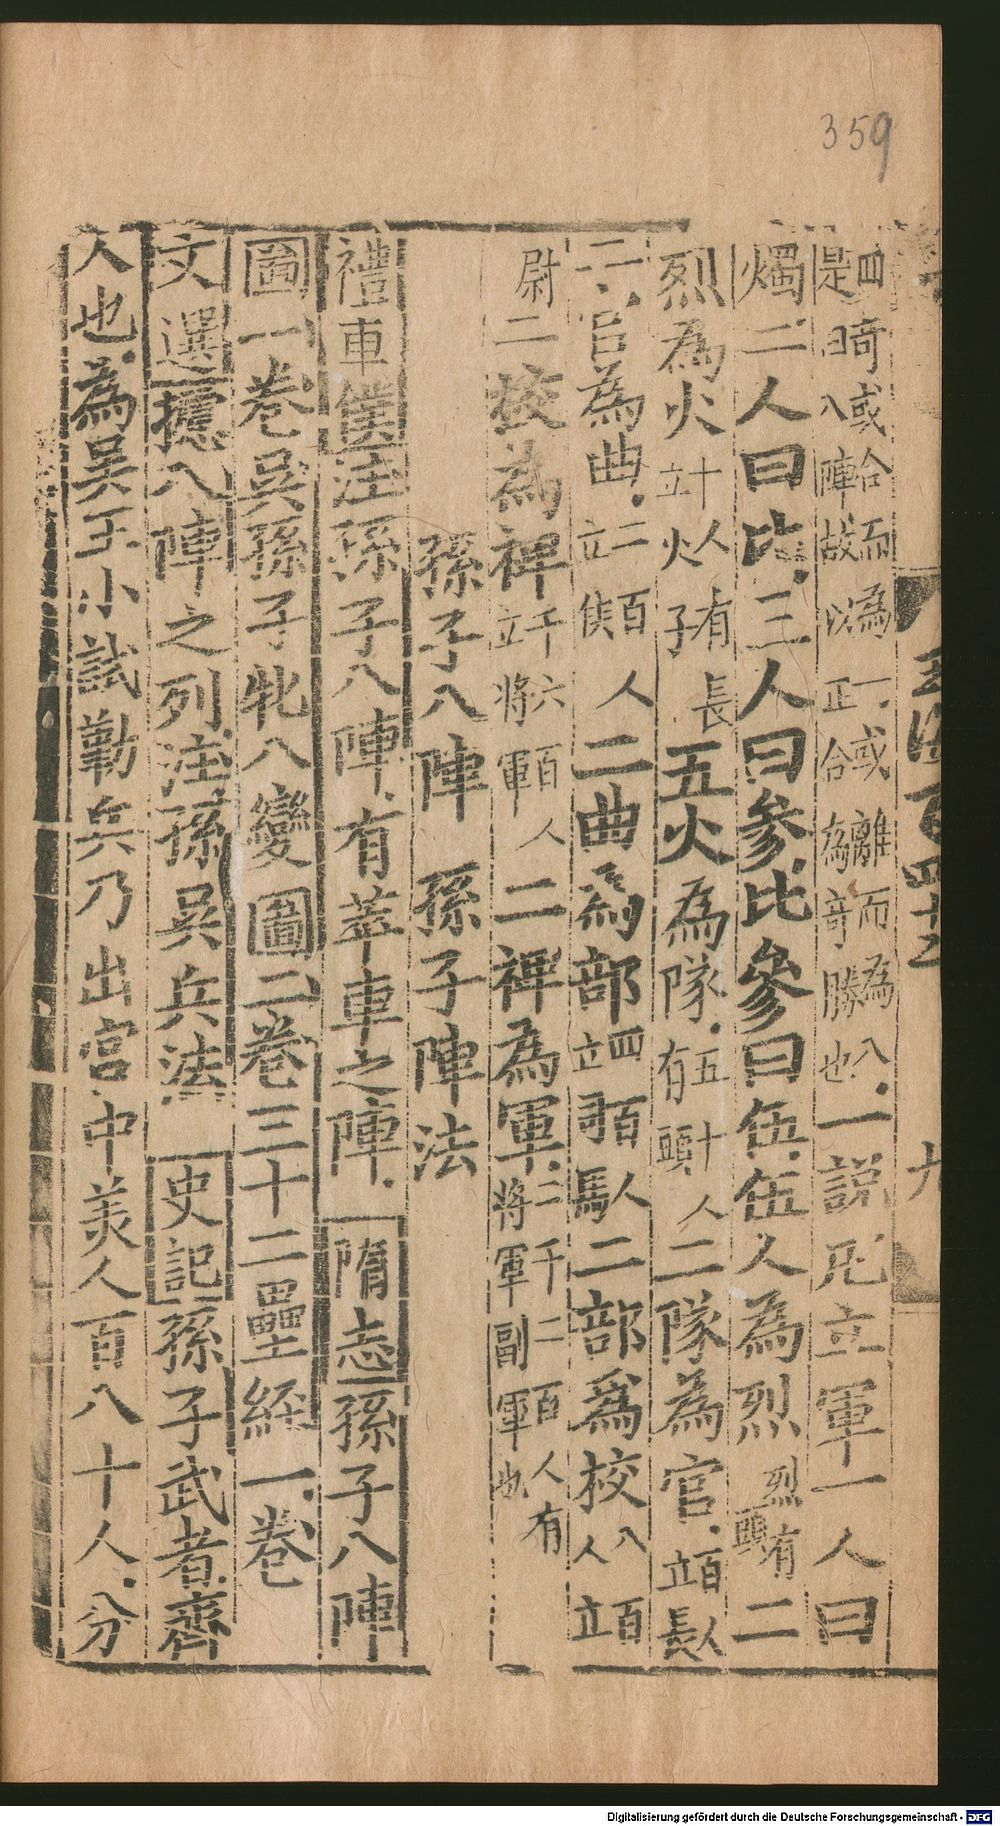 359
玉海百四十
九
四竒或合而為一或離而為八
是曰八陣故以正合為竒勝也一說凡立軍一人曰
燭二人曰比三人曰參比參曰伍伍人為烈烈有頭二
烈為火十人有長立火子五火為隊五十人有頭二隊為官百人立長
二官為曲二百人立候二曲為部四百人立司馬二部為校八百人立
尉二校為裨千六百人立將軍二裨為軍三千二百人有將軍副軍也
孫子八陣 孫子陣法
禮車僕注孫子八陣有苹車之陣隋志孫子八陣
圖一卷吳孫子牝八變圖二卷三十二壘經一卷
文選揔八陣之列注孫吳兵法 史記孫子武者齊
人也為吳王小試勒兵乃出宮中美人百八十人分
Digitalisierung gefördert durch die Deutsche Forschungsgemeinschaft - DFG